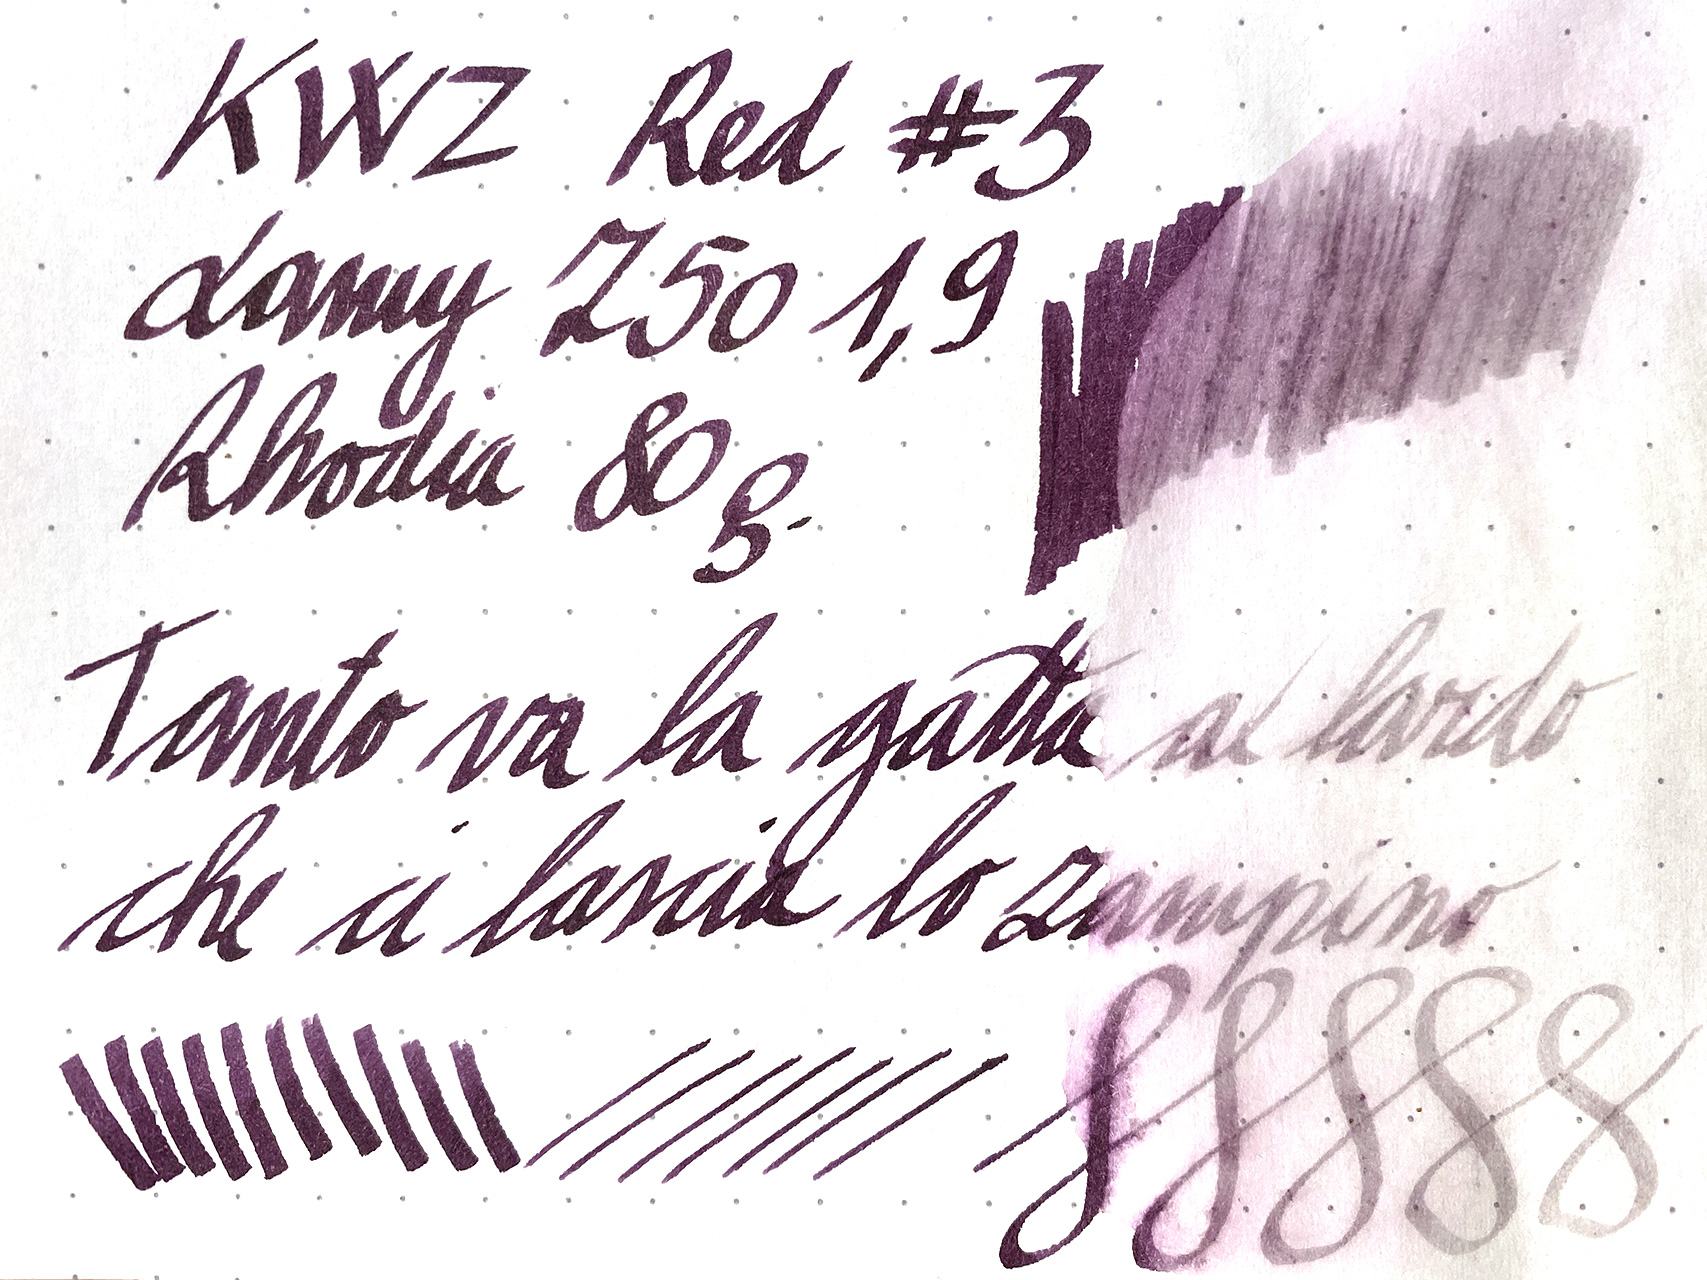 KWZ Red #3
Lamy Z50 1,9
Rhodia 80 g.
Tanto va la gatta al lardo
che ci lascia lo zampino